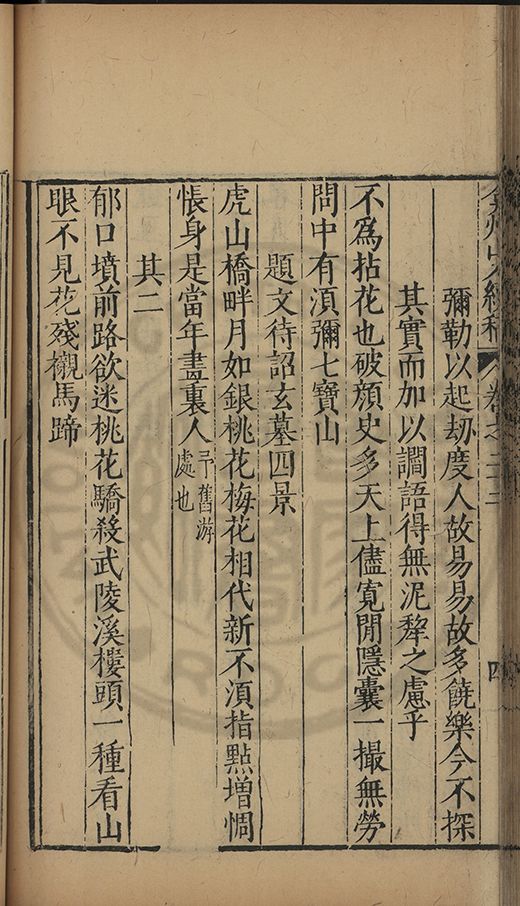 州山人續稿 卷之二
四
彌勒以起劫度人故易易故多饒樂今不探
其實而加以讕語得無泥犂之慮乎
不爲拈花也破顏史多天上儘寬閒隱囊一撮無勞
問中有湏彌七寶山
題文待詔玄墓四景
虎山橋畔月如銀桃花梅花相代新不湏指點增惆
悵身是當年畫裏人予舊游
處也
其二
郁口墳前路欲迷桃花驕殺武陵溪樓頭一種看山
眼不見花殘襯馬蹄